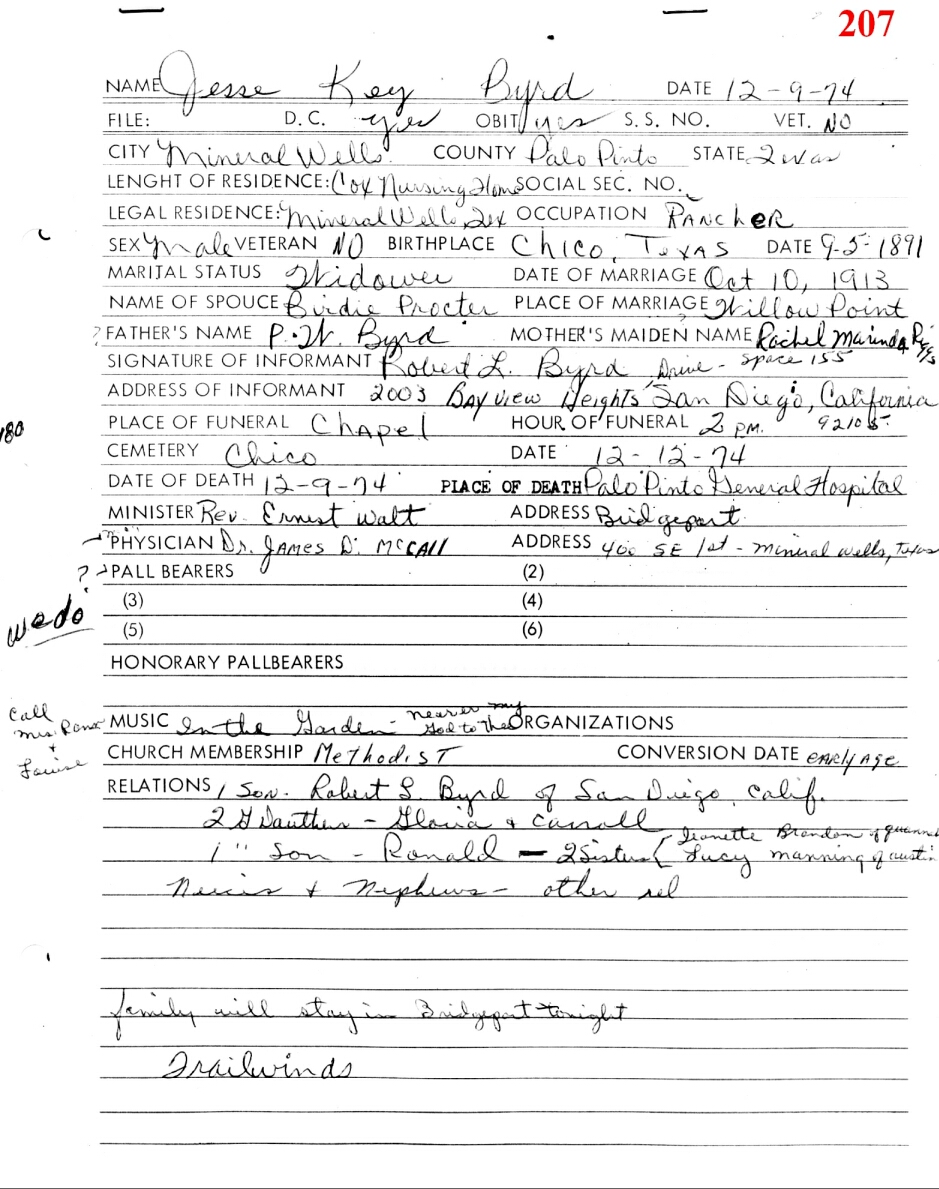 207
NAME Jesse Key Byrd DATE 12-9-74
FILE: D.C. yes OBIT yes S.S. NO. VET. NO
CITY Mineral Wells COUNTY Palo Pinto STATE Texas
LENGHT OF RESIDENCE: Cox Nursing Home SOCIAL SEC. NO.
LEGAL RESIDENCE: Mineral Wells, Tex OCCUPATION RANCHER
SEX Male VETERAN NO BIRTHPLACE Chico, Texas DATE 9-5-1891
MARITAL STATUS Widower DATE OF MARRIAGE Oct 10, 1913
NAME OF SPOUCE Birdie Procter PLACE OF MARRIAGE Willow Point
? FATHER'S NAME P. W. Byrd MOTHER'S MAIDEN NAME Rachel Marinda
SIGNATURE OF INFORMANT Robert L. Byrd Drive - Space 155
ADDRESS OF INFORMANT 2003 Bayview Heights San Diego, California
180 PLACE OF FUNERAL Chapel HOUR OF FUNERAL 2 PM. 92105
CEMETERY Chico DATE 12-12-74
DATE OF DEATH 12-9-74 PLACE OF DEATH Palo Pinto General Hospital
MINISTER Rev. Ernest Walt ADDRESS Bridgeport
PHYSICIAN Dr. JAMES D. McCAll ADDRESS 400 SE 1st - Mineral wells, Texas
? PALL BEARERS (2)
we do (3) (4)
(5) (6)
HONORARY PALLBEARERS
Call Mrs. + Louise
MUSIC In the Garden - nearer my God to thee ORGANIZATIONS
CHURCH MEMBERSHIP Methodist CONVERSION DATE early Age
RELATIONS 1 Son - Robert L. Byrd of San Diego, Calif.
2 G Daughters - Gloria & Carroll
1 " Son - Ronald - 2 Sisters { Jeanette Brandon of
Lucy Manning of Austin
Neices & Nephews - other rel
family will stay in Bridgeport tonight
Trailwinds